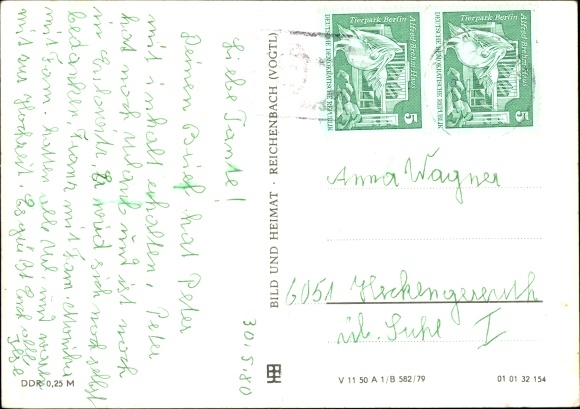 30.5.80
Liebe Tante!
Deinen Brief hat Peter
mit Inhalt erhalten, Peter
hat noch Urlaub und ist noch
er wird sich noch selbst
bedanken. Franz mit Fam.
mit Fam. hatten alle Url. und waren
mit zur Hochzeit. Es grüßt Euch alle
Ilse
BILD UND HEIMAT · REICHENBACH (VOGTL)
Tierpark Berlin
Alfred-Brehm-Haus
DEUTSCHE DEMOKRATISCHE REPUBLIK
5
Tierpark Berlin
Alfred-Brehm-Haus
DEUTSCHE DEMOKRATISCHE REPUBLIK
5
Anna Wagner
6051 Heckengereuth
üb. Suhl I
DDR 0,25 M
V 11 50 A 1/B 582/79
01 01 32 154